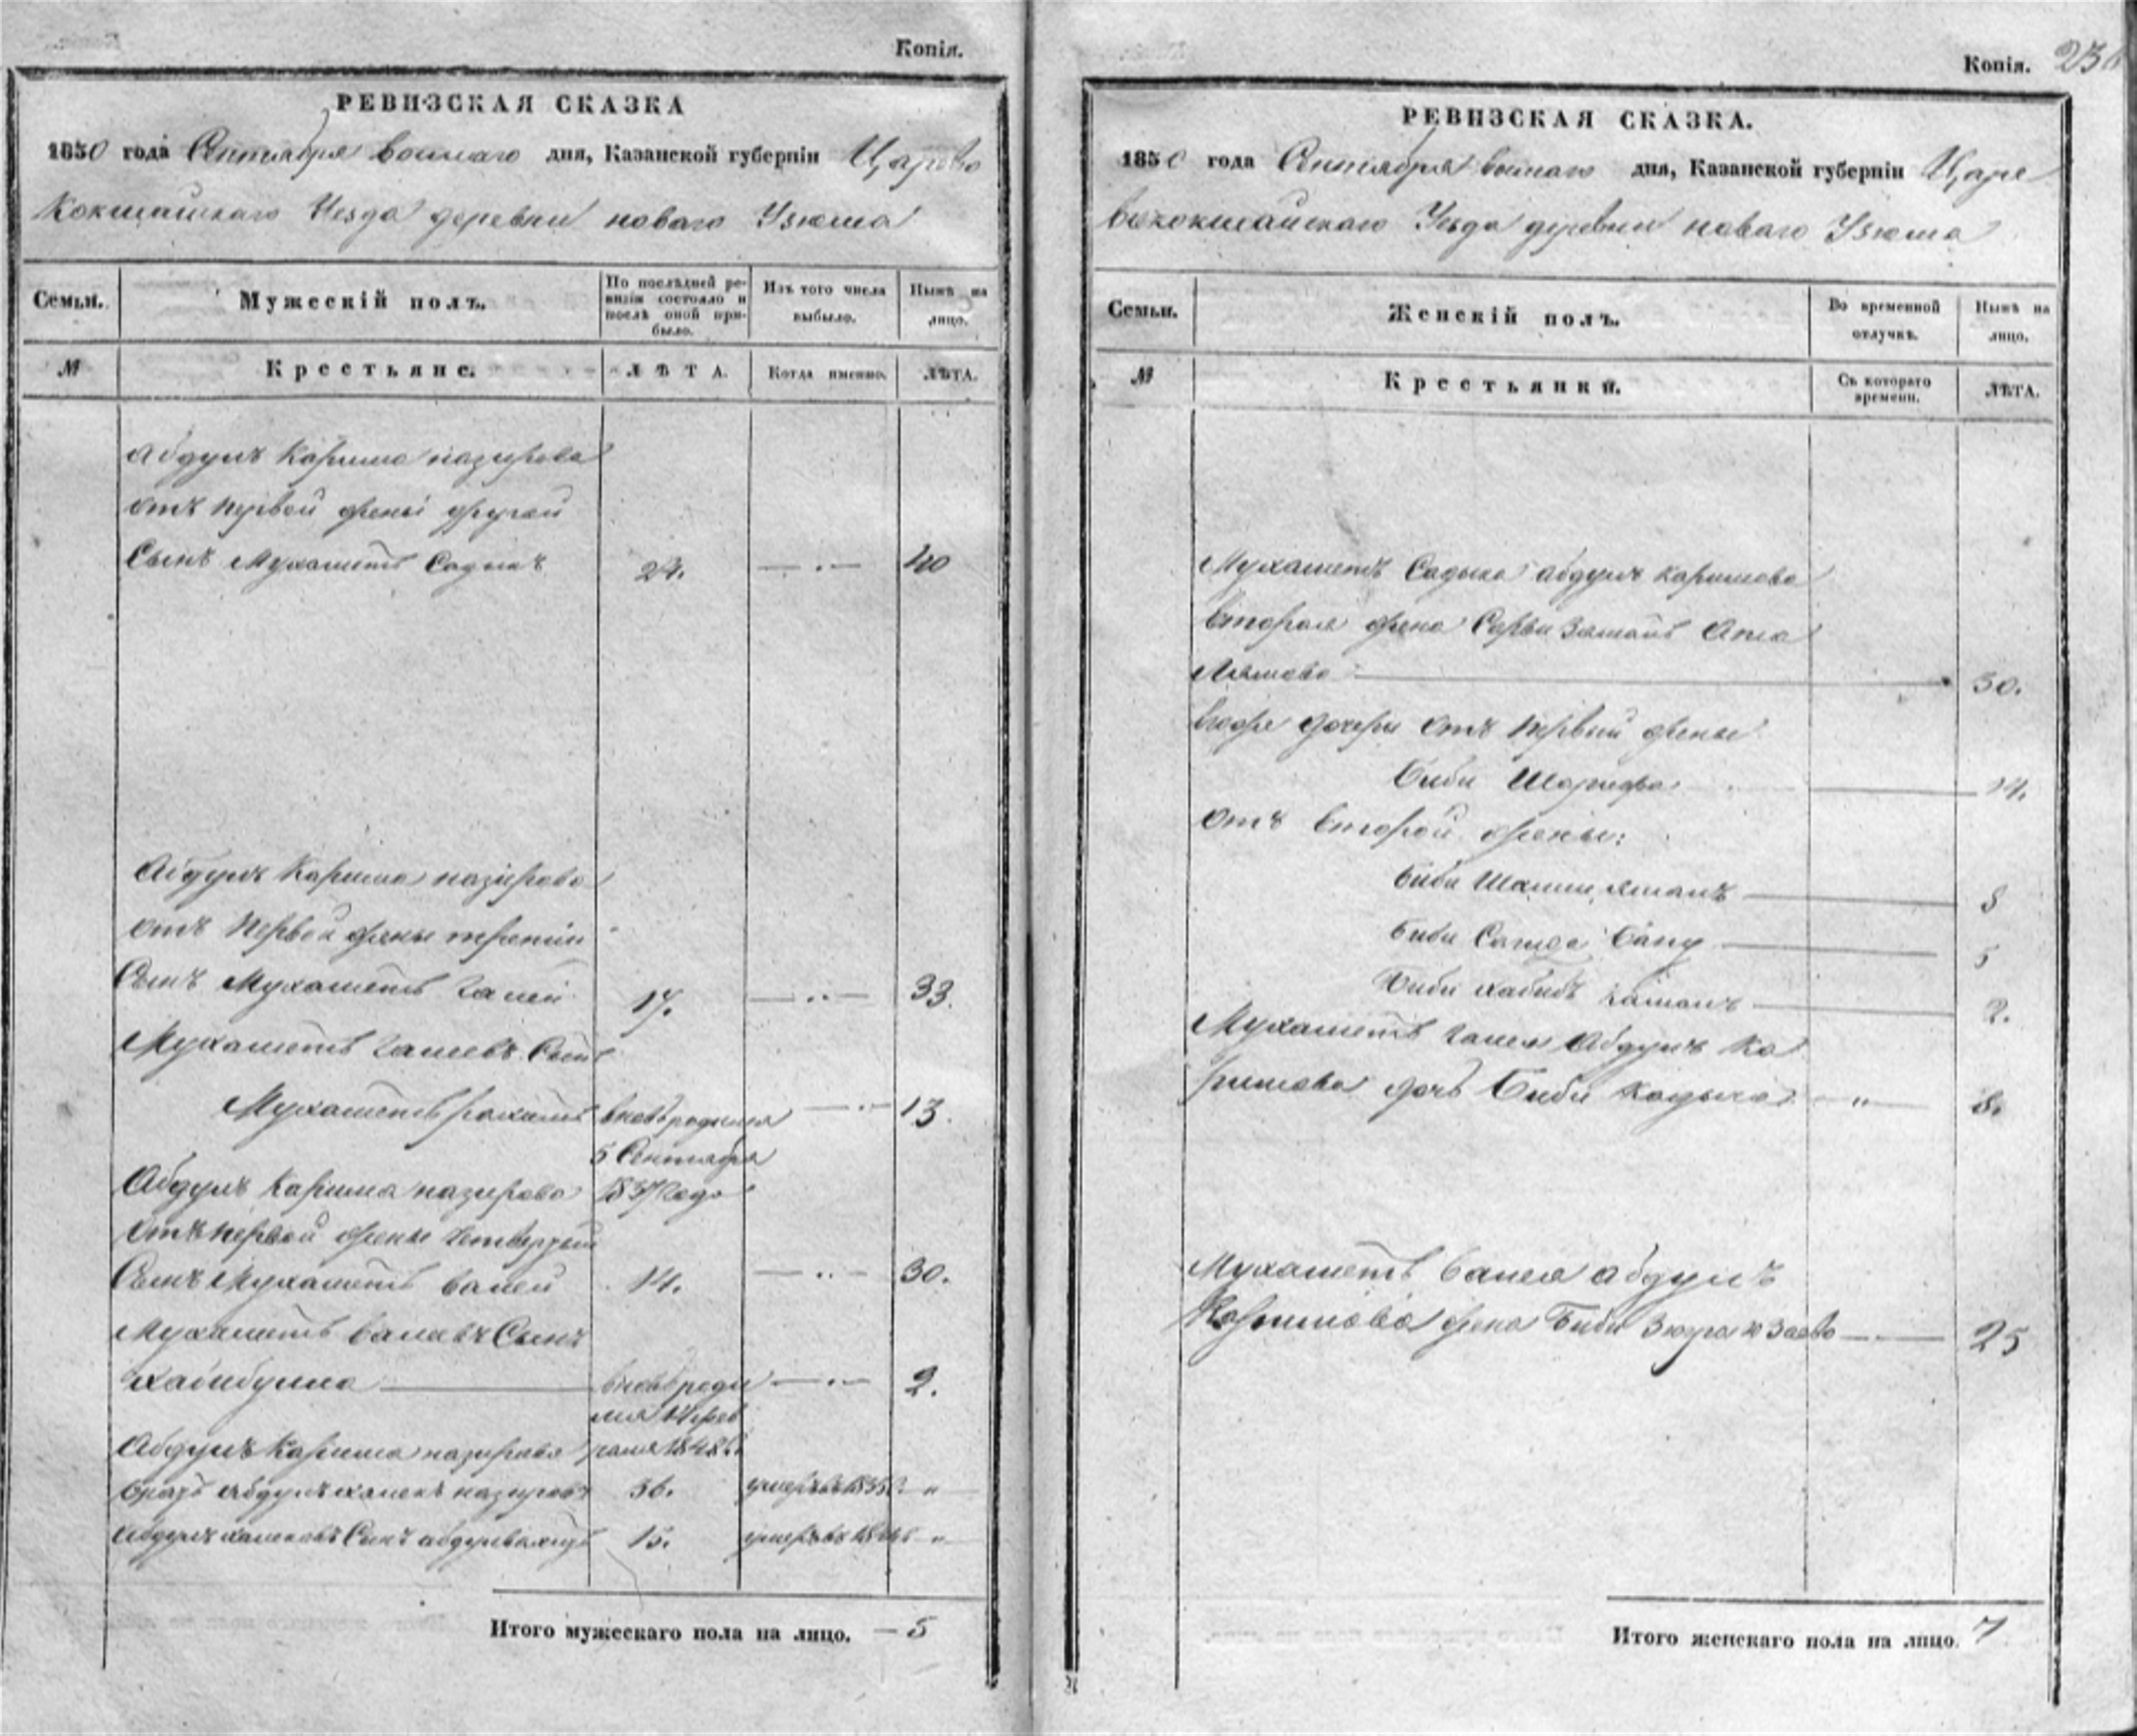 Копія.
РЕВИЗСКАЯ СКАЗКА
1850 года Сентября восмаго дня, Казанской губерніи Царево
Кокшайскаго Уезда деревни новаго Узюма
Семьи.
Мужескій полъ.
По послѣдней ревизіи состояло и послѣ оной прибыло.
Изъ того числа выбыло.
Нынѣ на лицо.
№
Крестьяне.
ЛѢТА.
Когда именно.
ЛѢТА.
Абдулъ Карима назирова
отъ первой жены другой
Сынъ Мухаметъ Садыкъ 24. 40
Абдулъ Карима назирова
отъ Первой жены третій
Сынъ Мухаметъ Галей 17. 33.
Мухаметъ Галеевъ Сынъ
Мухаметъ рахимъ вновь родился 13.
5 Сентября
Абдулъ Карима назирова 1837 года
отъ первой жены четвертый
Сынъ Мухаметъ Валей 14. 30.
Мухаметъ Валеевъ Сынъ
Хабибулла вновь роди 2.
лся 14 фев
Абдулъ Карима назирова раля 1848 г.
братъ Абдулъ халекъ назировъ 36. умеръ въ "
Абдулъ халековъ Сынъ абдулвахидъ 15. умеръ въ "
Итого мужескаго пола на лицо. — 5
Копія.
РЕВИЗСКАЯ СКАЗКА.
1850 года Сентября восмаго дня, Казанской губерніи Царе
вококшайскаго Уѣзда деревни новаго Узюма
Семьи.
Женскій полъ.
Во временной отлучкѣ.
Нынѣ на лицо.
№
Крестьянки.
Съ котораго времени.
ЛѢТА.
Мухаметъ Садыка абдулъ каримова
вторая жена Серви Замалъ
30.
Ево же дочери отъ первый жены
Биби Шарифа 14.
отъ второй жены:
Биби 8
Биби Бану 5
Биби хабибъ 2.
Мухаметъ Галея Абдулъ Ка
римова дочь Биби Кадыча " 8.
Мухаметъ Валея абдулъ
Каримова жена Биби Зюгра 25
Итого женскаго пола на лицо. 7